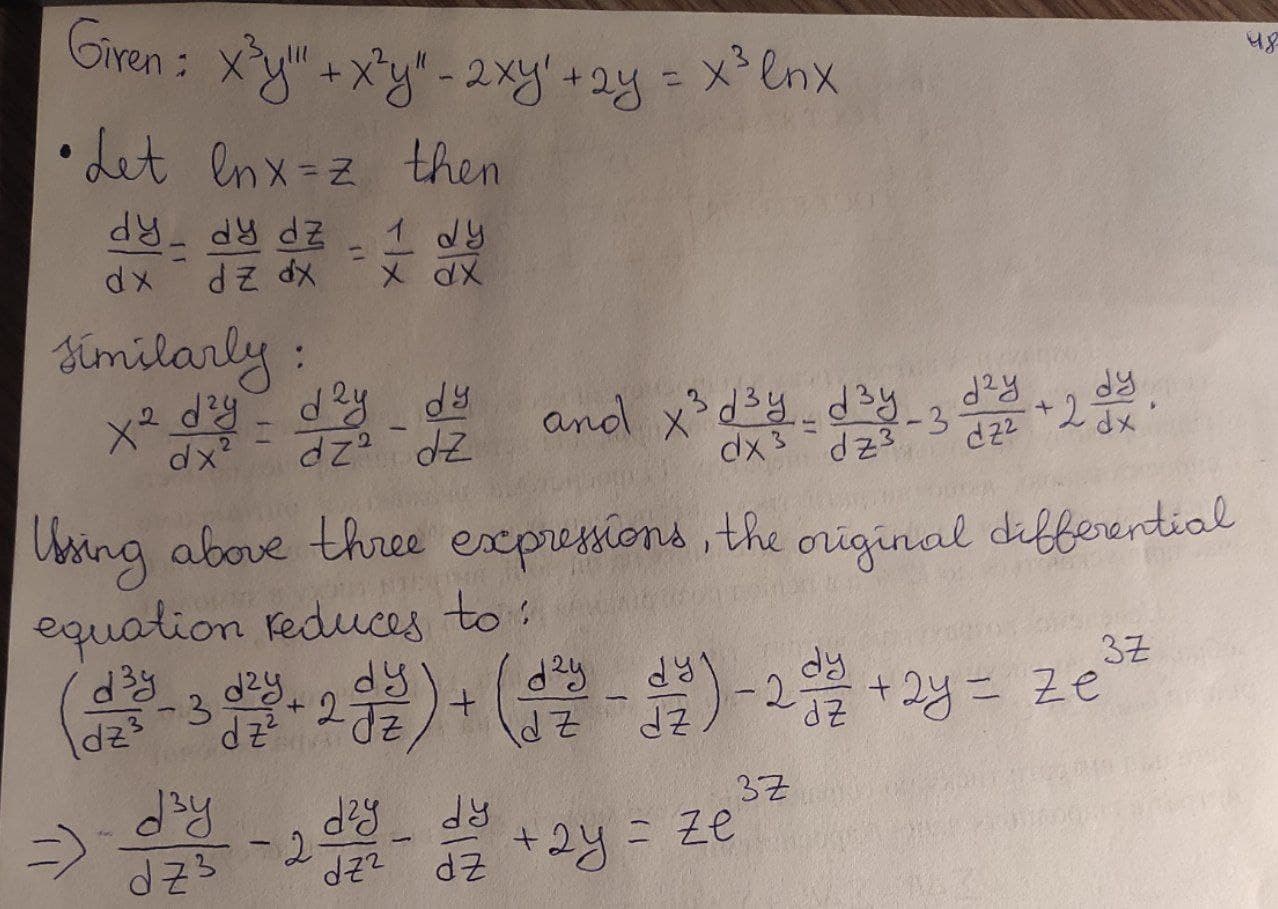 48
Given: x³y''' + x²y'' - 2xy' + 2y = x³ lnx
• Let lnx = z then
dy/dx = dy/dz dz/dx = 1/x dy/dx
Similarly:
x² d²y/dx² = d²y/dz² - dy/dz and x³ d³y/dx³ = d³y/dz³ - 3 d²y/dz² + 2 dy/dx.
Using above three expressions, the original differential
equation reduces to:
(d³y/dz³ - 3 d²y/dz² + 2 dy/dz) + (d²y/dz - dy/dz) - 2 dy/dz + 2y = ze^3z
=> d³y/dz³ - 2 d²y/dz² - dy/dz + 2y = ze^3z